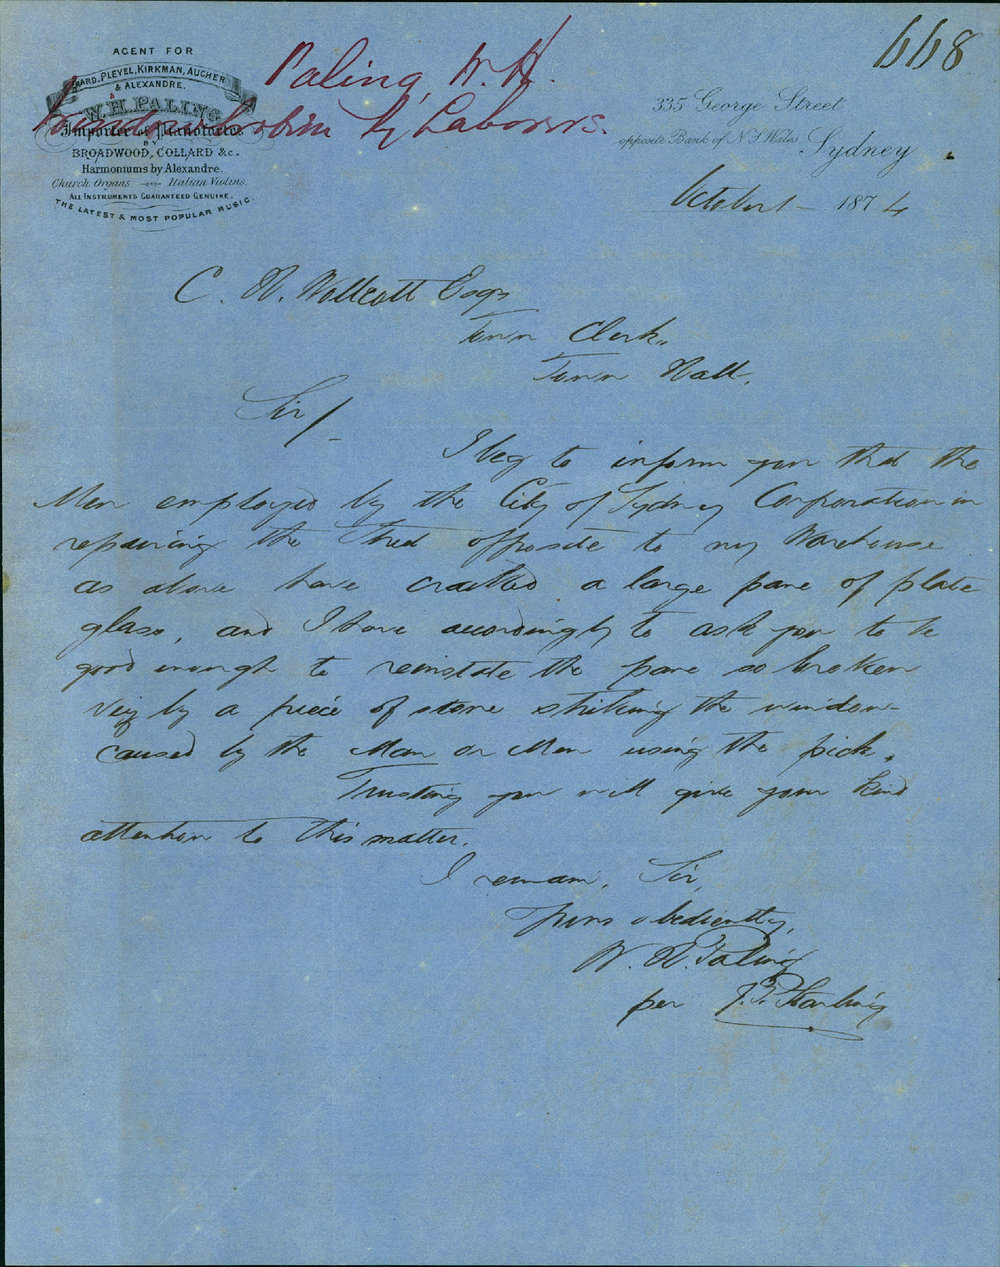 668
Paling, W. H.
Window broken by Laborers.
AGENT FOR
ERARD, PLEYEL, KIRKMAN, AUCHER
& ALEXANDRE.
W. H. PALING
Importer of Pianofortes
BY
BROADWOOD, COLLARD & c.
Harmoniums by Alexandre.
Church Organs Italian Violins.
ALL INSTRUMENTS GUARANTEED GENUINE.
THE LATEST & MOST POPULAR MUSIC.
335 George Street
opposite Bank of N.S. Wales Sydney
October 1 - 1874
C. H. Wollcott Esqr
Town Clerk,
Town Hall.
Sir/
I beg to inform you that the
Men employed by the City of Sydney Corporation in
repairing the Street opposite to my Warehouse
as above have cracked a large pane of plate
glass, and I have accordingly to ask you to be
good enough to reinstate the pane so broken
viz by a piece of stone striking the window
caused by the Man or Men using the pick.
Trusting you will give your kind
attention to this matter.
I remain, Sir,
Yours obediently,
W. H. Paling
per J. Starling